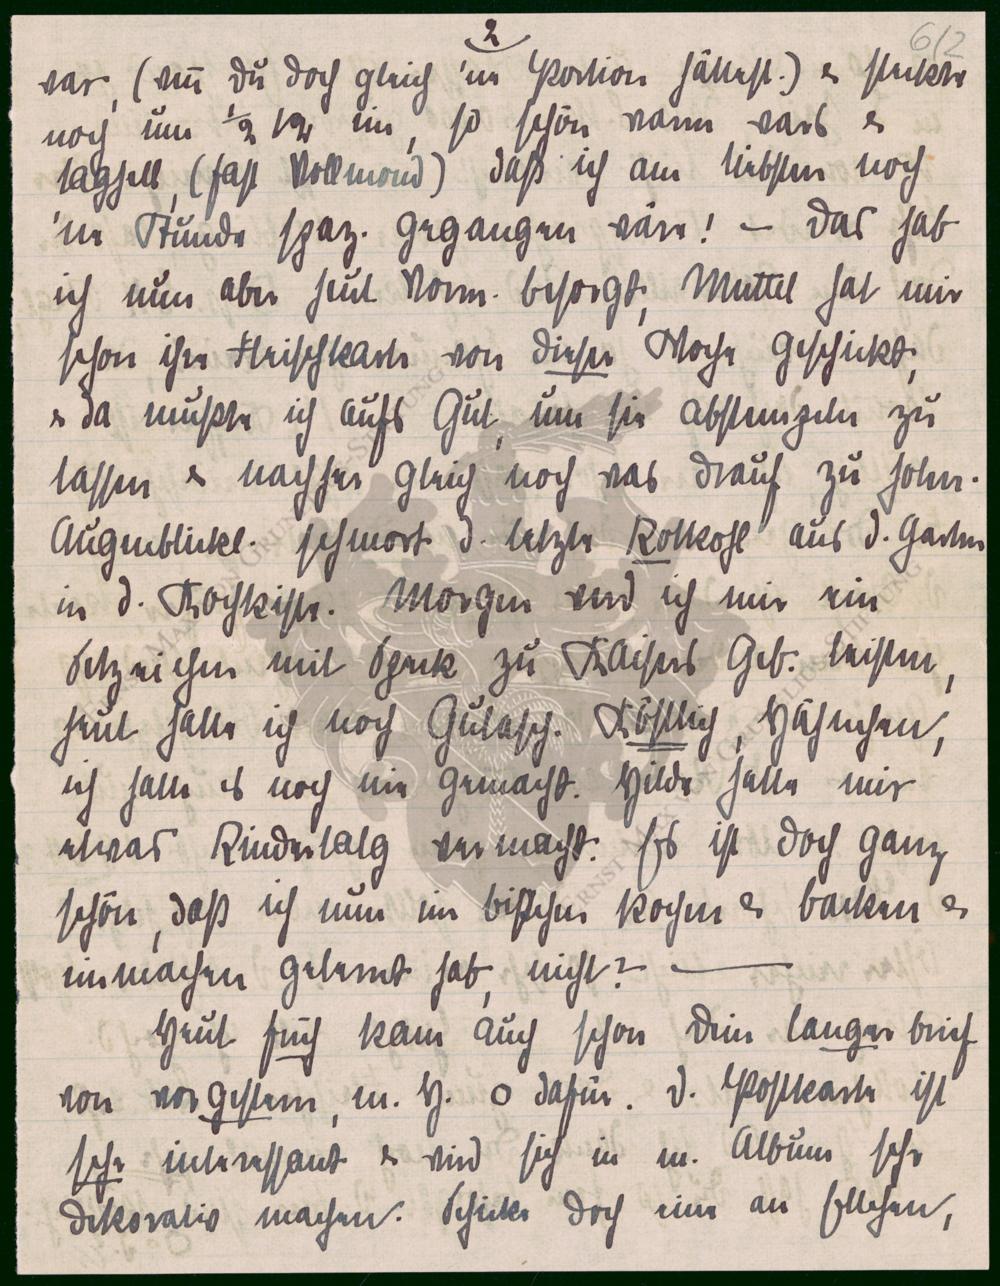 2
6/2
war, (wenn Du doch gleich 'ne Portion hättest.) & steckte
noch um ½ 12 ein, so schön warm wars &
taghell, (fast Vollmond) daß ich am liebsten noch
'ne Stunde spaz. gegangen wäre! — Das hab
ich nun aber heut Vorm. besorgt, Muttel hat mir
schon ihre Fleischkarte von dieser Woche geschickt,
& da mußte ich aufs Gut, um sie abstempeln zu
lassen & nachher gleich noch was drauf zu holen.
Augenblickl. schmort d. letzte Rotkohl aus d. Garten
in d. Kochkiste. Morgen werd ich mir ein
Setzeichen mit Speck zu Kaisers Geb. leisten,
heut hatte ich noch Gulasch. Köstlich, Hähnchen,
ich hatte es noch nie gemacht. Hilde hatte mir
etwas Rindertalg vermacht. Es ist doch ganz
schön, daß ich nun ein bißchen kochen & backen &
einmachen gelernt hab, nicht? —
Heut früh kam auch schon Dein langer brief
von vorgestern, m. H. O dafür. D. Postkarte ist
sehr interessant & wird sich in m. Album sehr
dekorativ machen. Schicke doch eine an Ellechen,